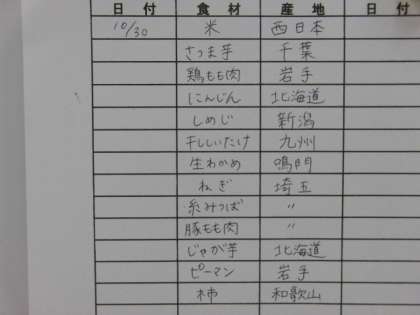 日付 食材 産地 日付
10/30 米 西日本
さつま芋 千葉
鶏もも肉 岩手
にんじん 北海道
しめじ 新潟
干ししいたけ 九州
生わかめ 鳴門
ねぎ 埼玉
糸みつば 〃
豚もも肉 〃
じゃが芋 北海道
ピーマン 岩手
柿 和歌山